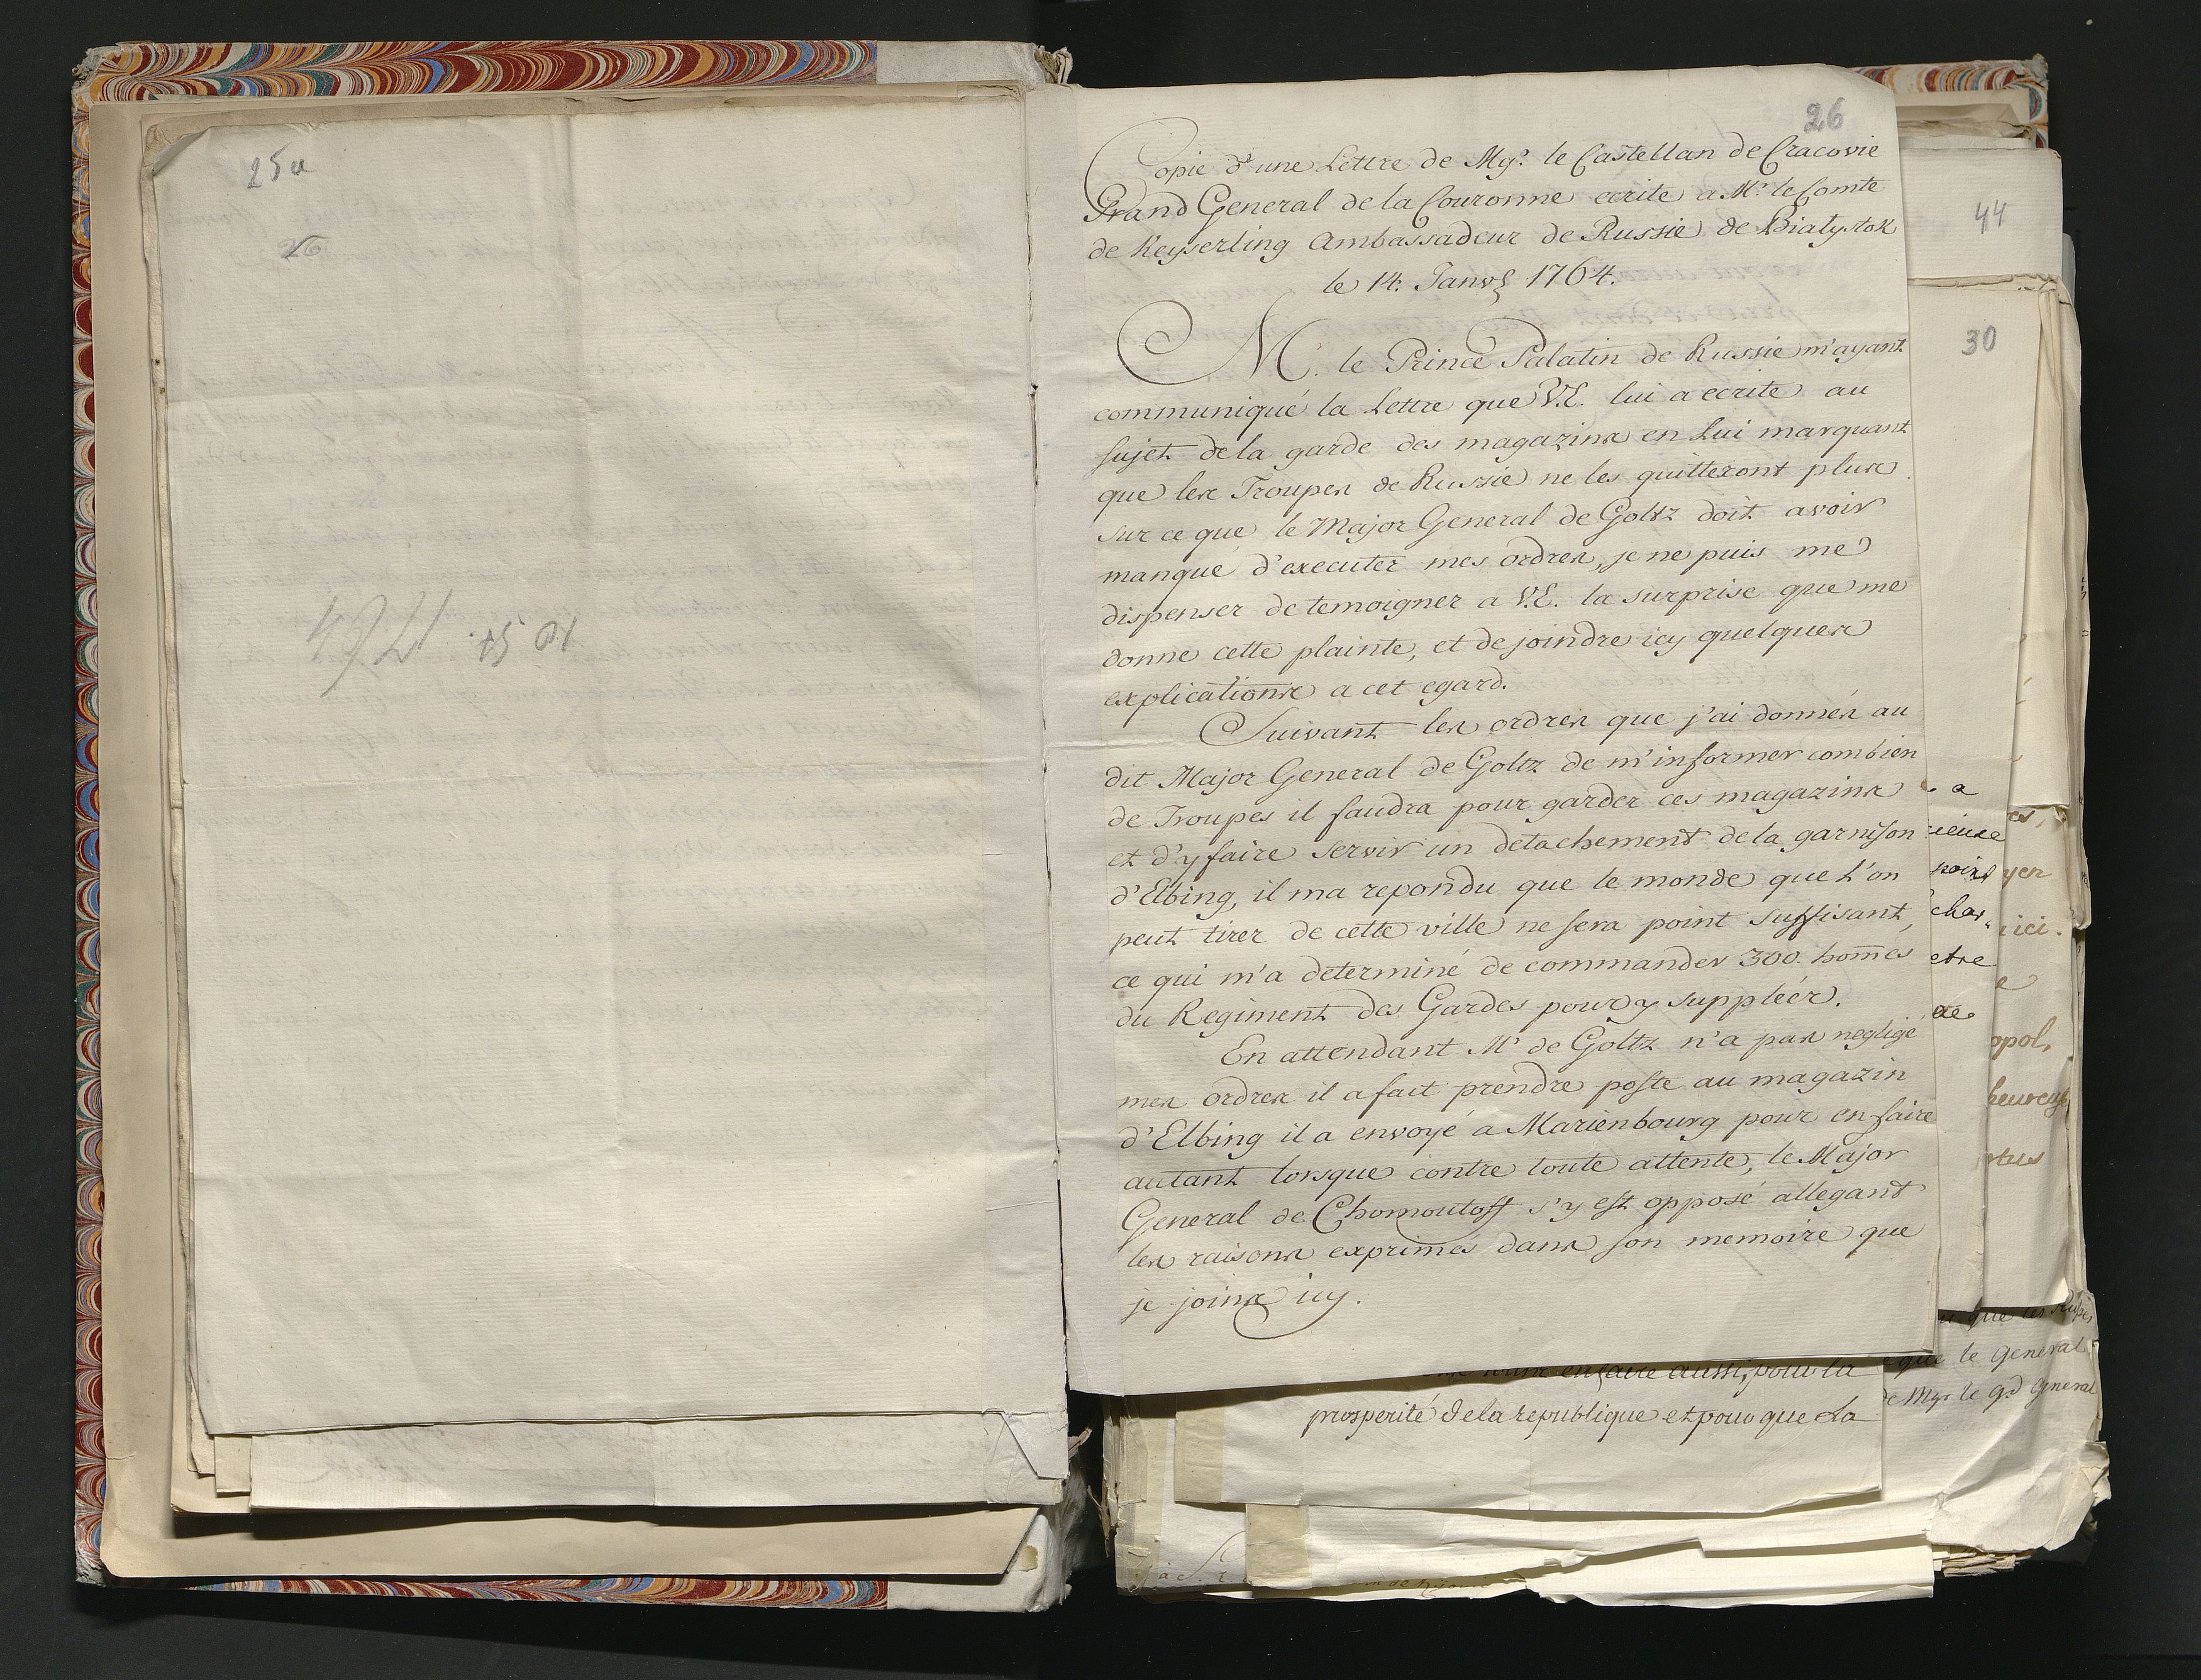 25a
26
10 St. 1764
26
Copie d'une Lettre de Mgr. le Castellan de Cracovie
Grand General de la Couronne ecrite a Mr. le Comte
de Keyserling Ambassadeur de Russie de Bialystok
le 14. Janvr 1764.
Mr. le Prince Palatin de Russie m'ayant
communiqué la Lettre que V.E. lui a ecrite au
sujet de la garde des magazins en Lui marquant
que les Troupes de Russie ne les quitteront plus
sur ce que le Major General de Goltz doit avoir
manqué d'executer mes ordres, je ne puis me
dispenser de temoigner a V.E. la surprise que me
donne cette plainte, et de joindre icy quelques
explications a cet egard.
Suivant les ordres que j'ai donnés au
dit Major General de Goltz de m'informer combien
de Troupes il faudra pour garder ces magazins
et d'y faire servir un detachement de la garnison
d'Elbing, il ma repondu que le monde que l'on
peut tirer de cette ville ne sera point suffisant,
ce qui m'a determiné de commander 300. hom̄es
du Regiment des Gardes pour y suppléer.
En attendant Mr de Goltz n'a pas negligé
mes ordres il a fait prendre poste au magazin
d'Elbing il a envoyé a Marienbourg pour en faire
autant lorsque contre toute attente, le Major
General de Chomoutoff s'y est opposé allegant
les raisons exprimés dans son memoire que
je joins icy.
44
30
a
ieuse
etre
yen
ici.
opol,
en faire aussi, pour la
prosperité de la republique et pour que la
que le General
de Mgr le gd General